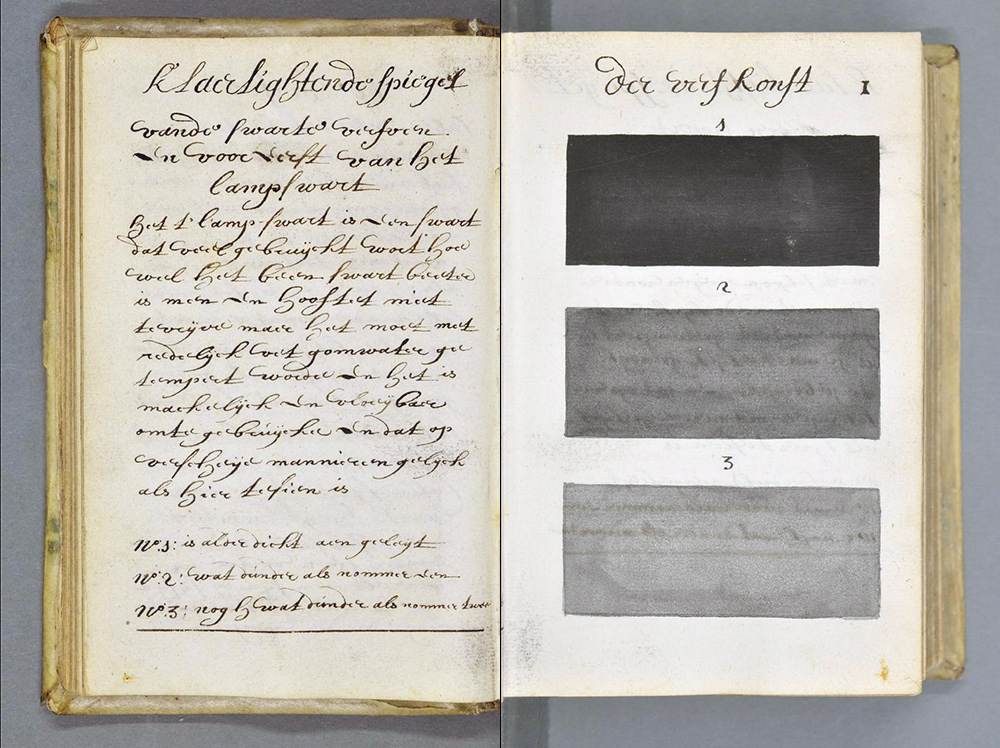 Klaerlightende spiegel
vande swarte verfven
En voor Eerst van het
lampswart
Het t' lamp-swart is Een swart
dat veel gebruijckt wort hoe
wel het been swart beeter
is men En hooftet niet
te vrijve maer het moet met
redelijck vet gomwater ge
tempert worde En het is
mackelijck En vloeijbaer
omte gebruijcke En dat op
verscheije mannieren gelijck
als hier tesien is
No. 1: is alder dickt aengeleijt
No. 2: wat dunder als nommer Een
No. 3: nogh wat dunder als nommer twee
der verfkonst 1
1
2
3